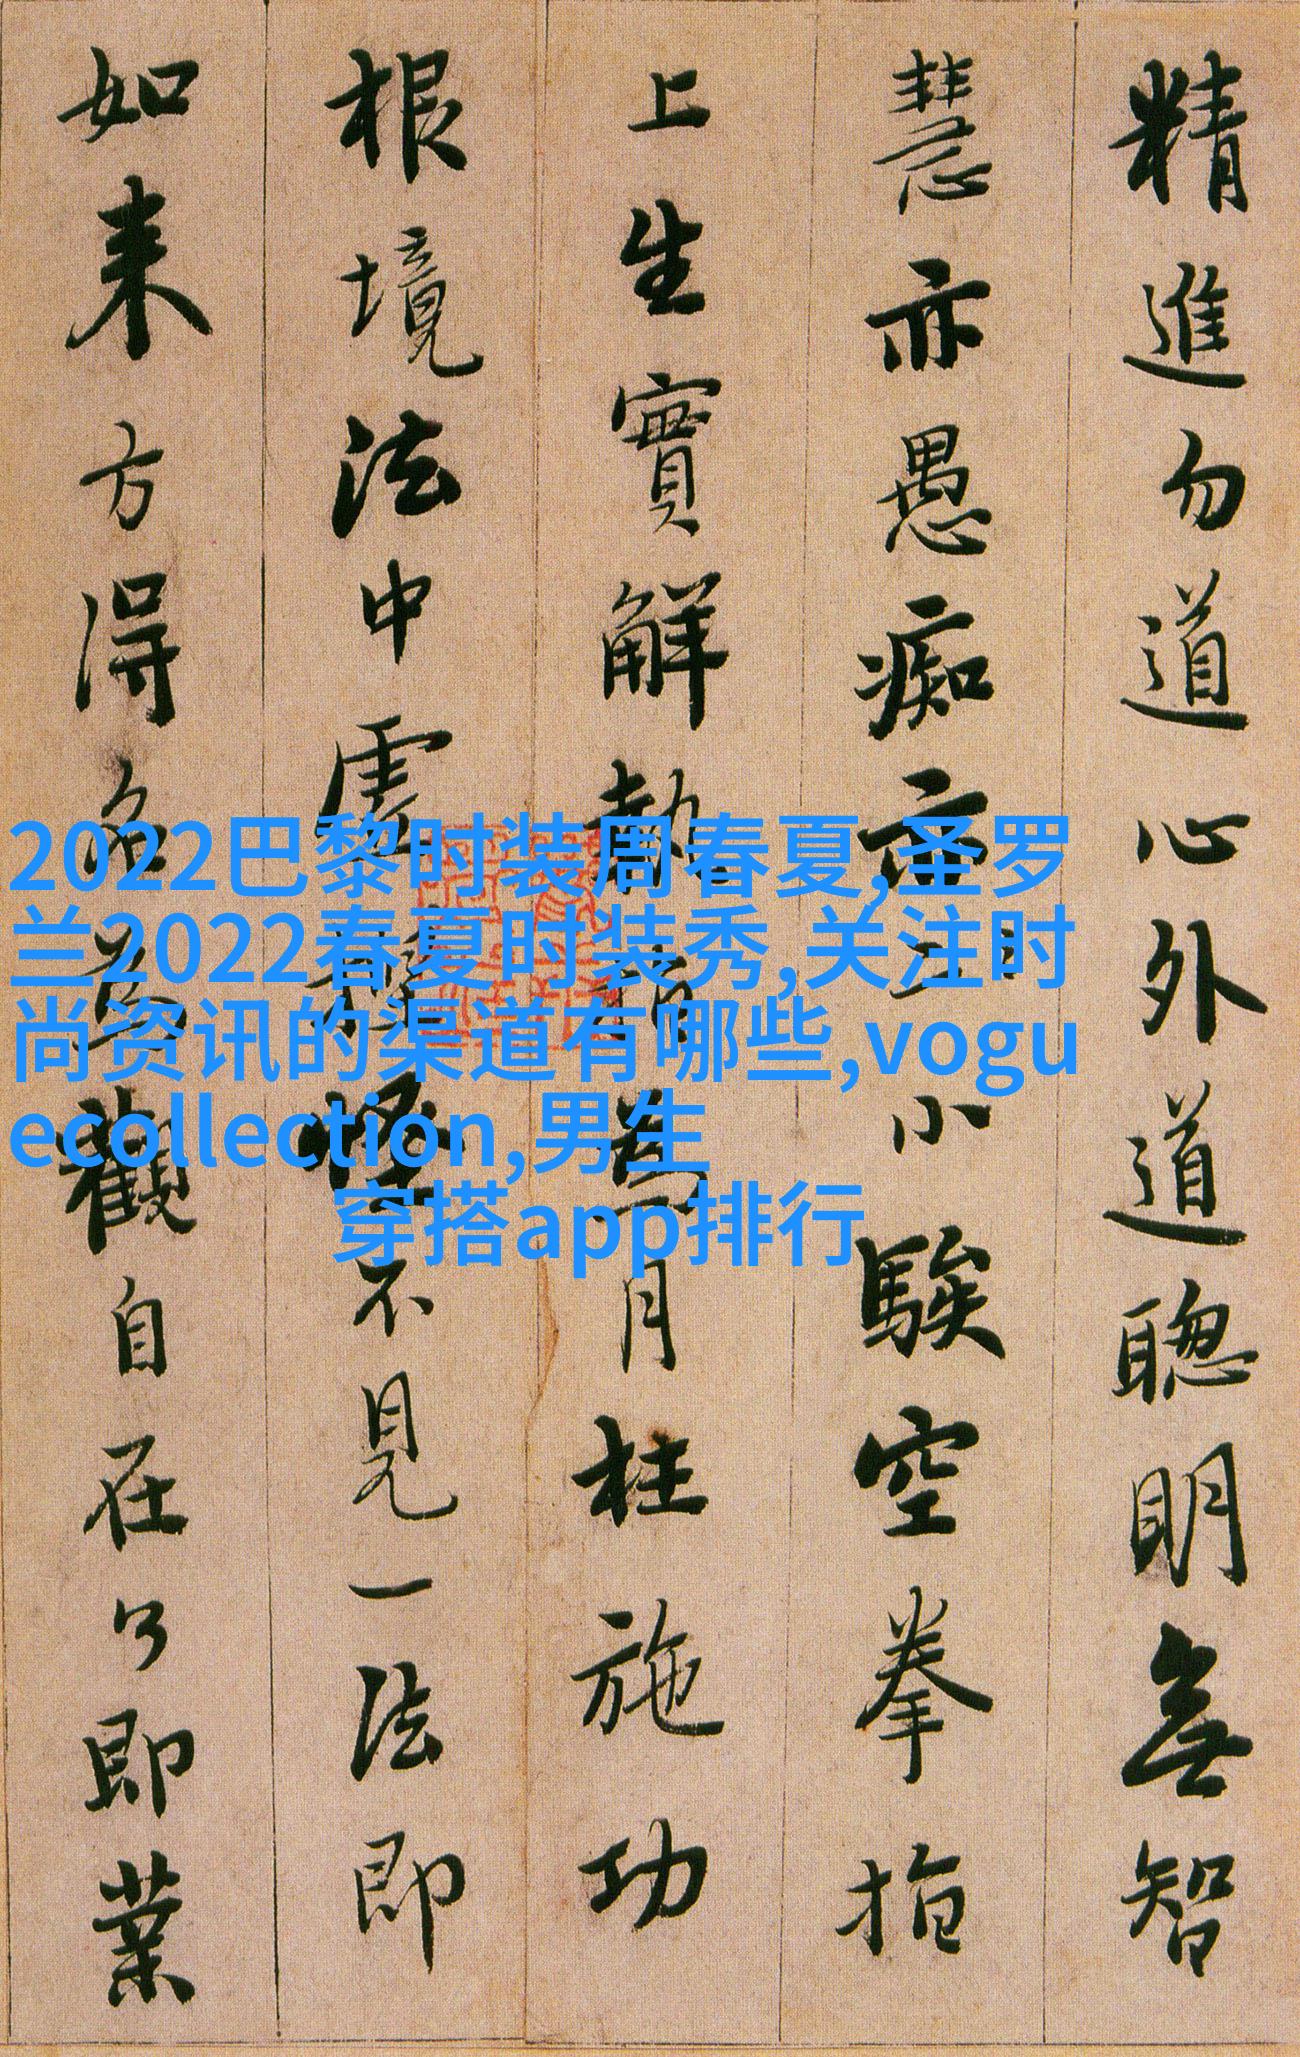 精進勿道心外道聰明無智
慧亦愚痴亦小騃空拳指
上生實解執指為月枉施功
根境法中虛捏怪不見一法即
如来方得名為觀自在了即業
2022巴黎时装周春夏,圣罗
兰2022春夏时装秀,关注时
尚资讯的渠道有哪些,vogu
ecollection,男生
穿搭app排行